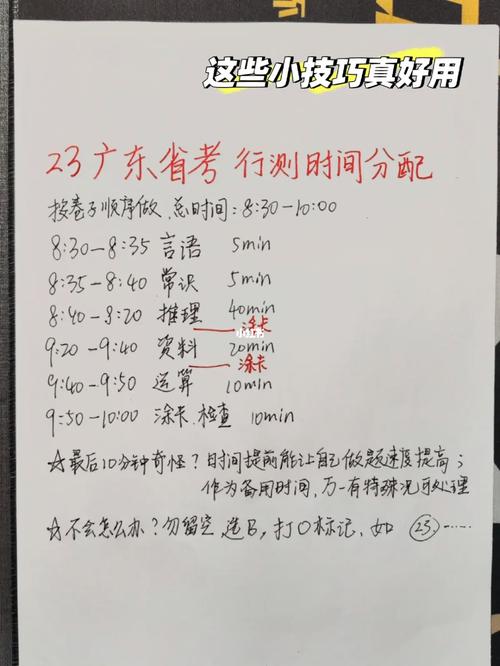 这些小技巧真好用
23广东省考 行测时间分配
按卷子顺序做 总时间:8:30-10:00
8:30-8:35 言语 5min
8:35-8:40 常识 5min
8:40-9:20 推理 40min
涂卡
小红书
9:20-9:40 资料 20min
涂卡
9:40-9:50 运算 10min
9:50-10:00 涂卡.检查 10min
☆最后10分钟奇怪?时间提前能让自己做题速度提高;
作为备用时间,万一有特殊况可处理
☆不会怎么办?勿留空,选B,打O标记,如 23.……